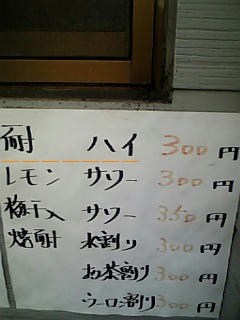 酎 ハイ 300円
レモン サワー 300円
梅干入 サワー 350円
焼酎 水割り 300円
お茶割り 300円
ウーロン割り 300円